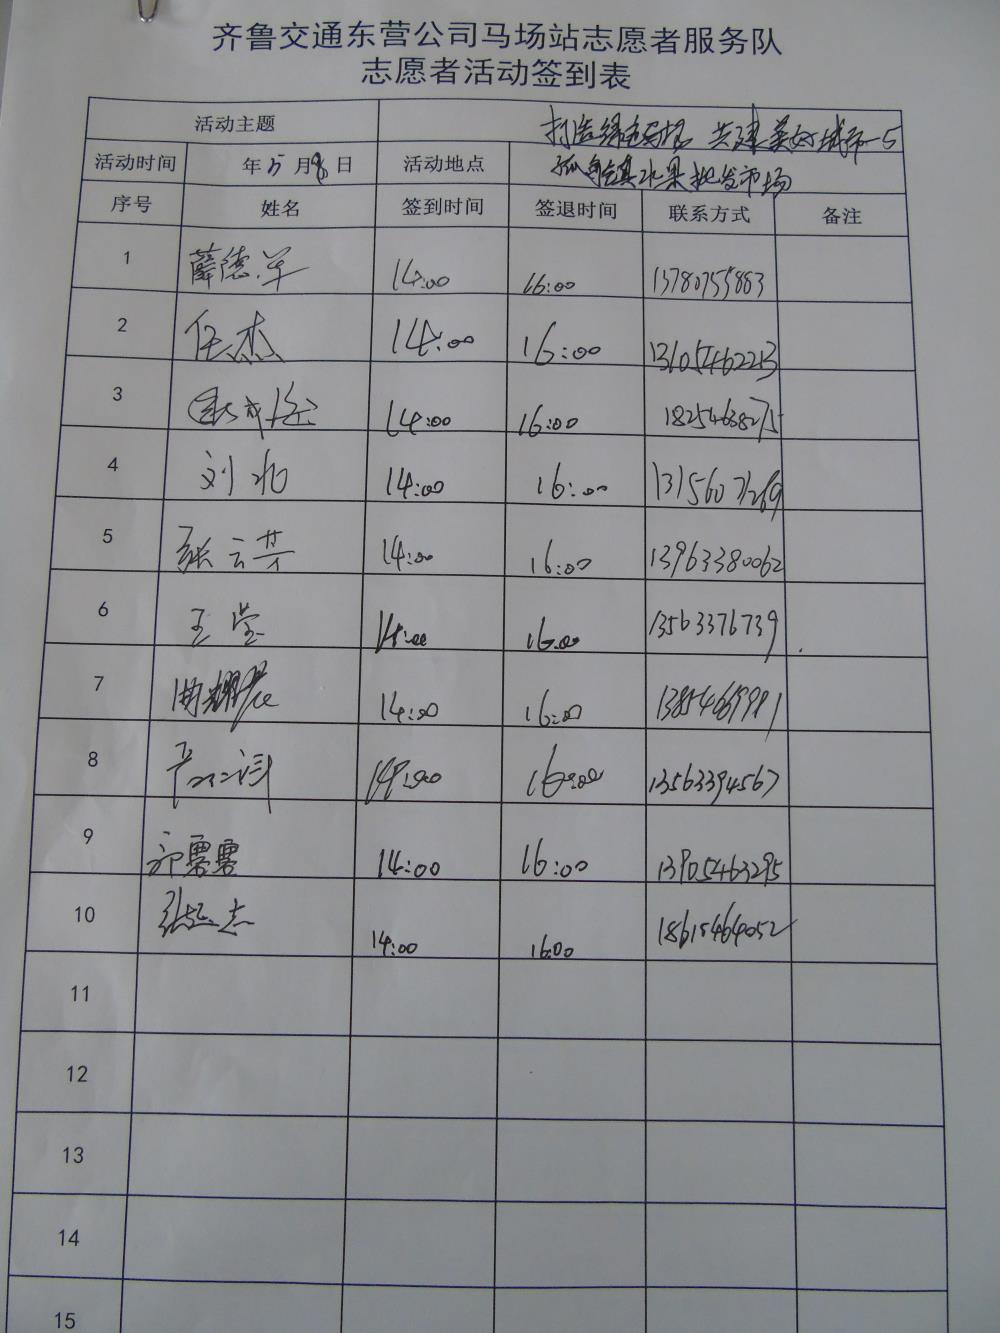 齐鲁交通东营公司马场站志愿者服务队
志愿者活动签到表
活动主题 打造绿色环境 共建美好城市-5
活动时间 年 5 月 8 日 活动地点 孤岛镇水果批发市场
序号 姓名 签到时间 签退时间 联系方式 备注
1 薛德军 14:00 16:00 13780755883
2 任杰 14:00 16:00 13105462213
3 14:00 16:00 18254638275
4 刘北 14:00 16:00
5 张云芳 14:00 16:00 13963380062
6 王莹 14:00 16:00 13563376739
7 14:00 16:00
8 14:00 16:00 13563394567
9 郭露露 14:00 16:00 13905463295
10 14:00 16:00 18615464052
11
12
13
14
15